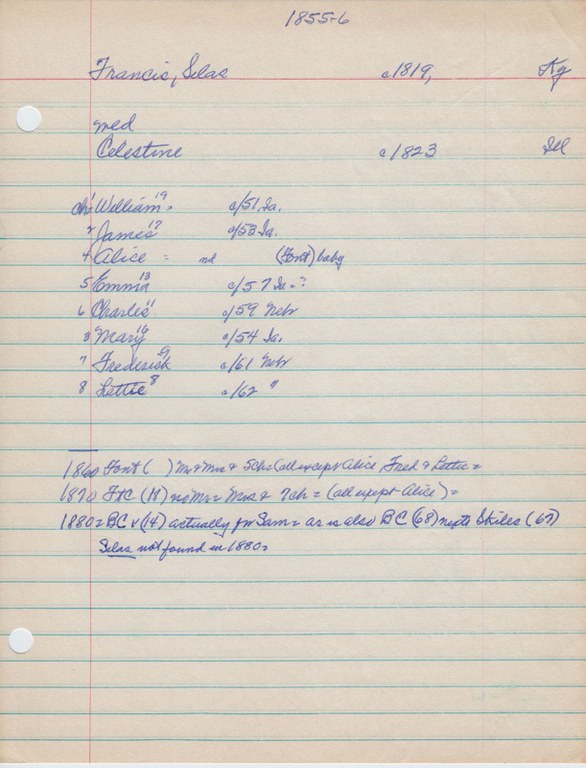 1855-6
Francis, Silas c/1819, Ky
med
Celestine c/1823 Ill
ch 1 William 19 c/51 Ia.
2 James 17 c/53 Ia.
4 Alice = nd (Font) baby
5 Emma 13 c/57 Ia-?
6 Charles 11 c/59 Nebr
3 Mary 16 c/54 Ia.
7 Frederick 9 c/61 Nebr
8 Lettie 8 c/62 "
1860 Font ( ) Mr & Mrs & 5 chs (all except Alice, Fred & Lettie =
1870 FtC (18) no Mr = Mrs & 7 ch = (all except Alice) =
1880 = BC (14) actually for Sam = as is also BC (68) next Skiles (67)
Silas not found in 1880 =